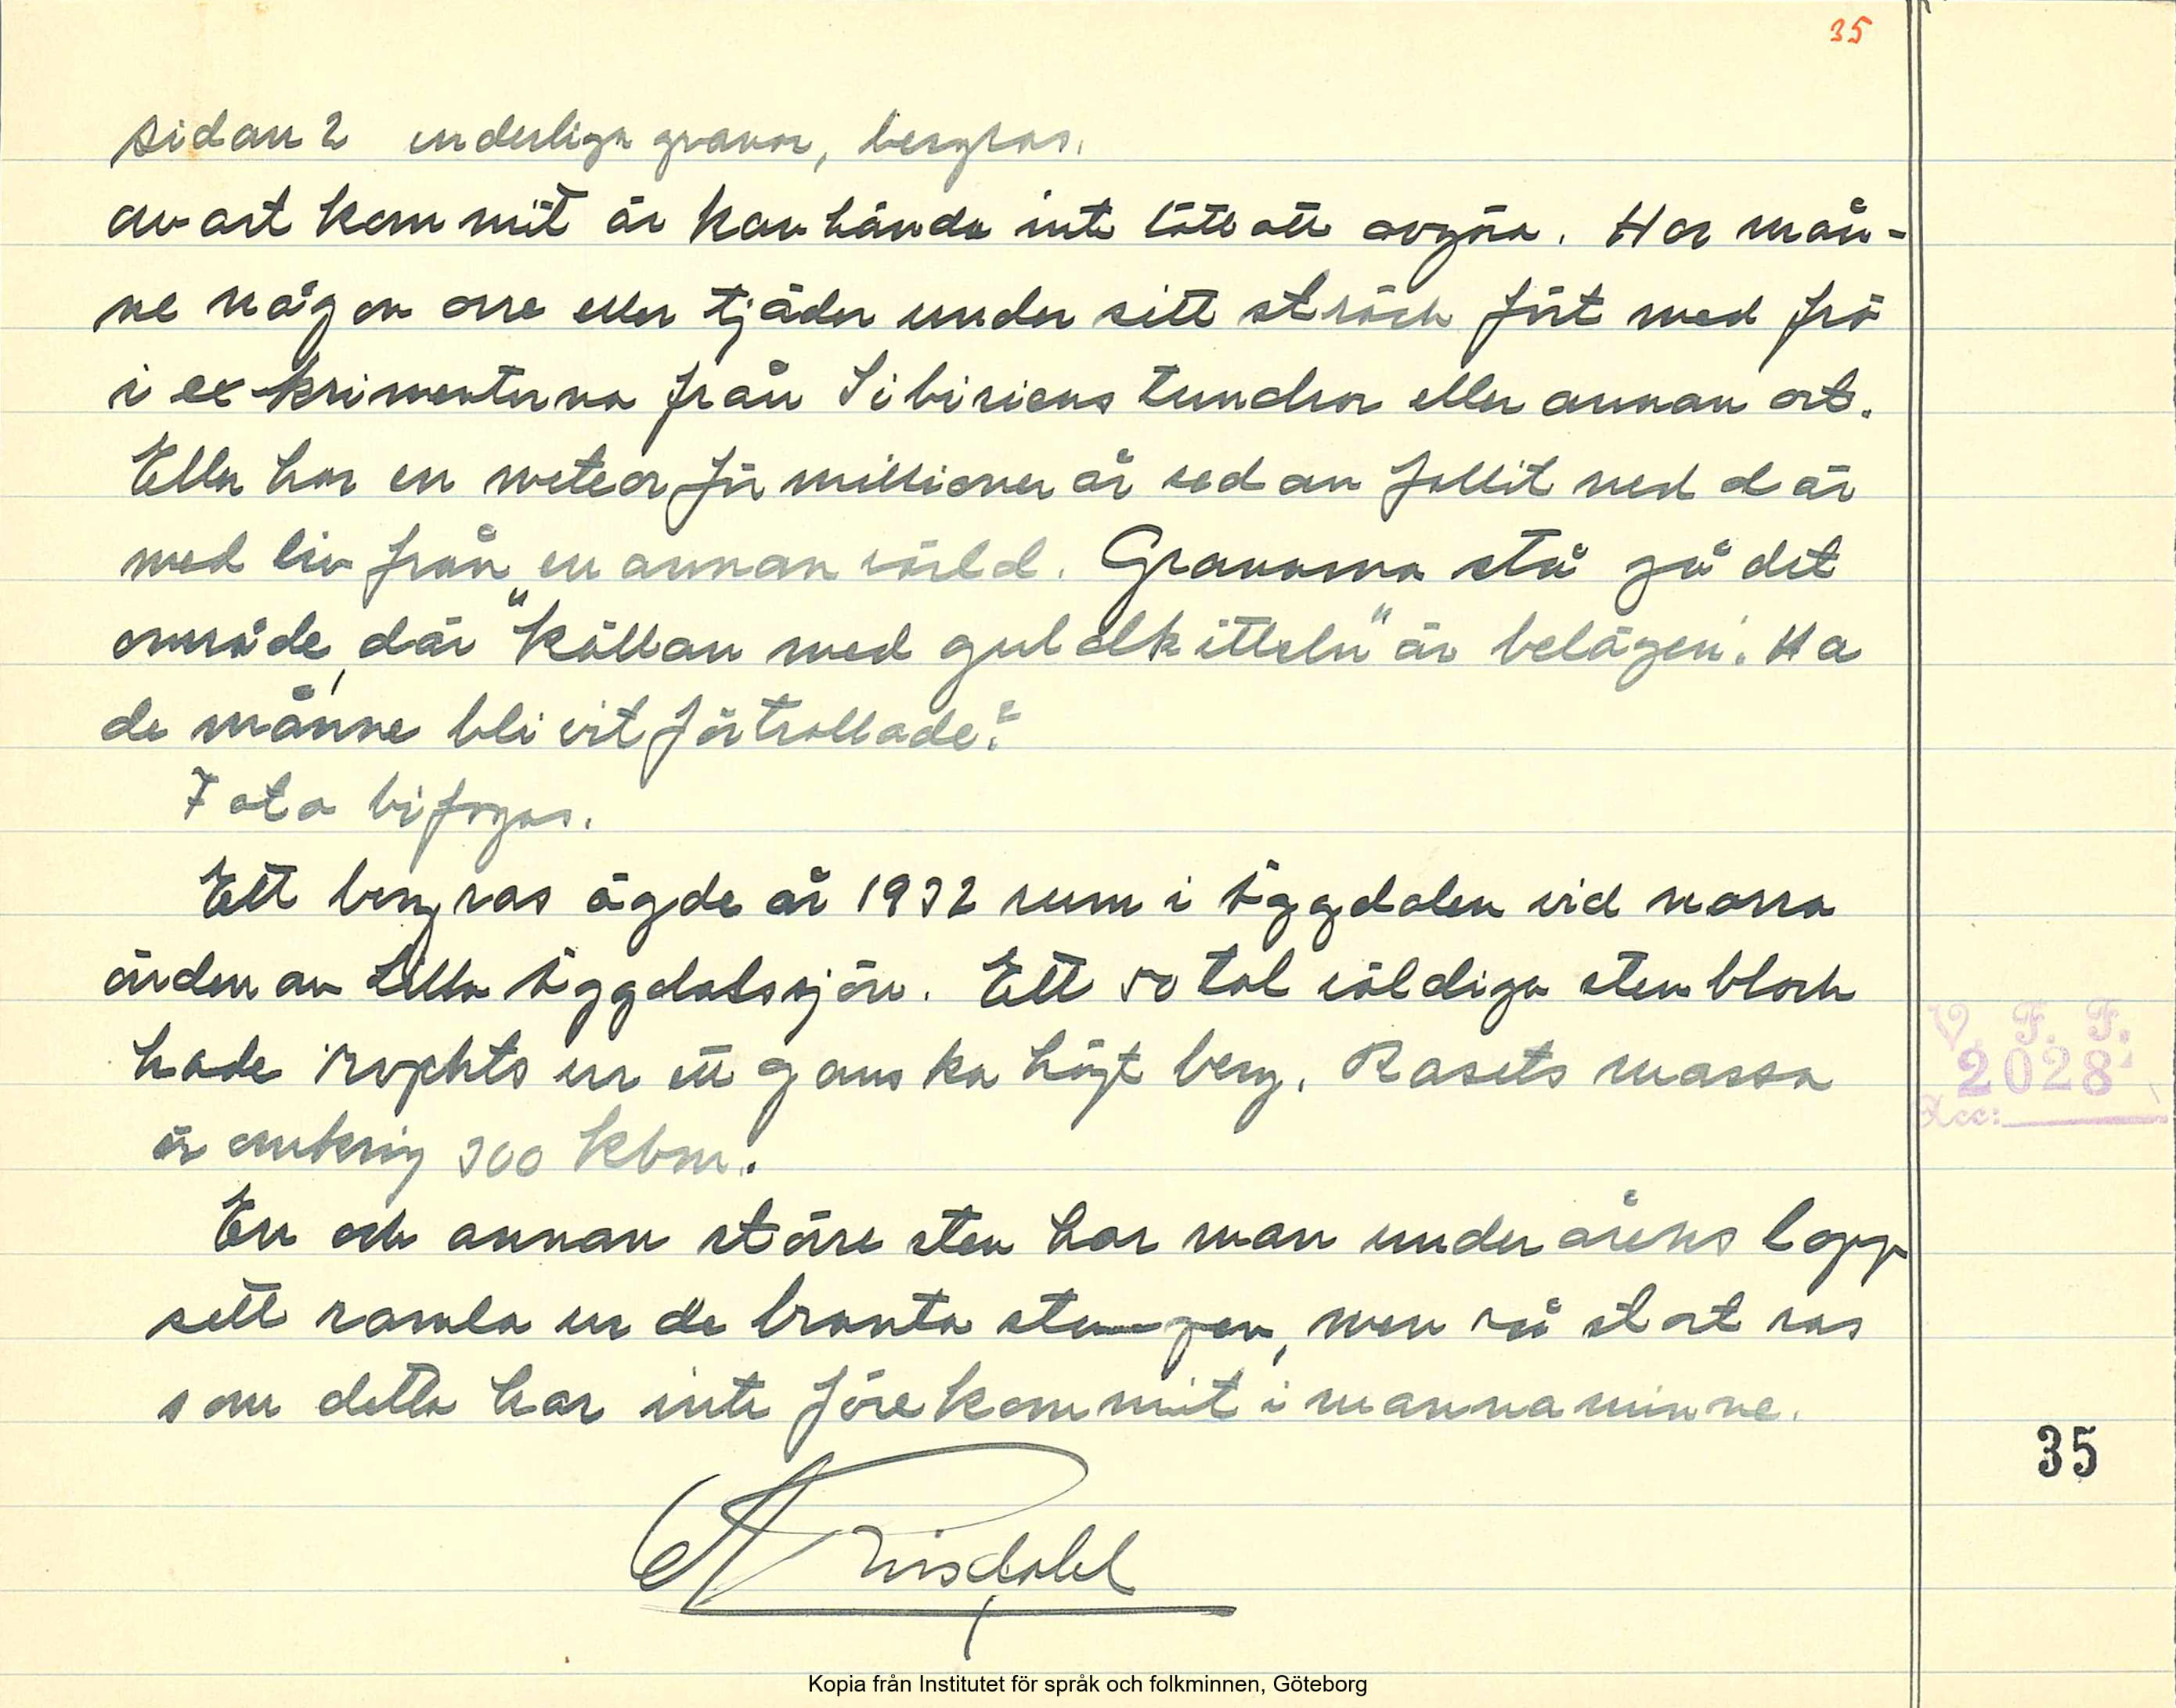 35
sidan 2 underliga granar, bergras.
av art kommit är kanhända inte lätt att avgöra. Har mån-
ne någon orre eller tjäder under sitt sträck fört med frö
i exkrimenterna från Sibiriens tundror eller annan ort.
Eller har en meteor för millioner år sedan fallit ned där
med liv från en annan värld. Granarna stå på det
område, där "källan med guldkitteln" är belägen. Ha
de månne blivit förtrollade?
Foto bifogas.
Ett bergras ägde år 1932 rum i Äggdalen vid norra
änden av Lilla Äggdalssjön. Ett 50 tal väldiga stenblock
hade ryckts ur ett ganska högt berg. Rasets massa
är omkring 300 kbm.
En och annan större sten har man under årens lopp
sett ramla ur de branta, men så stort ras
som detta har inte förekommit i mannaminne.
V. F. F.
2028
Acc:
35
Kopia från Institutet för språk och folkminnen, Göteborg